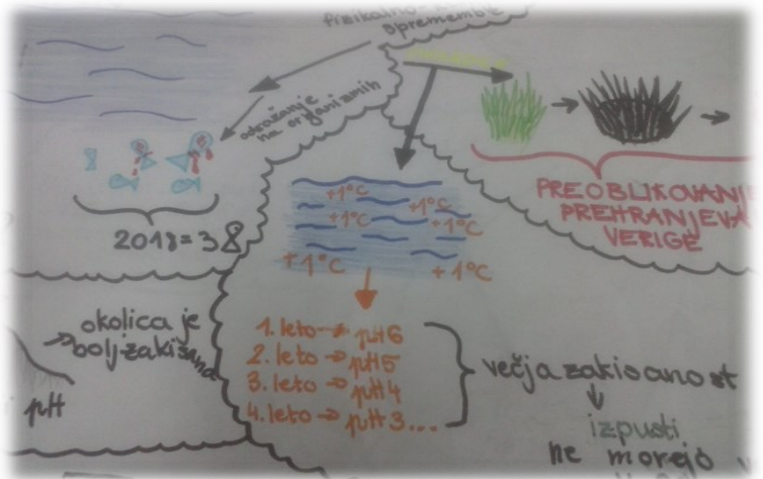 fizikalno-
spremembe
odražanje
na organizmih
2018=38
PREOBLIKOVANJE
PREHRANJEVA
VERIGE
+1°C
+1°C
+1°C
+1°C
+1°C
+1°C
okolica je
bolj zakisana
pH
1. leto → pH6
2. leto → pH5
3. leto → pH4
4. leto → pH3...
večja zakisanost
izpusti
ne morejo